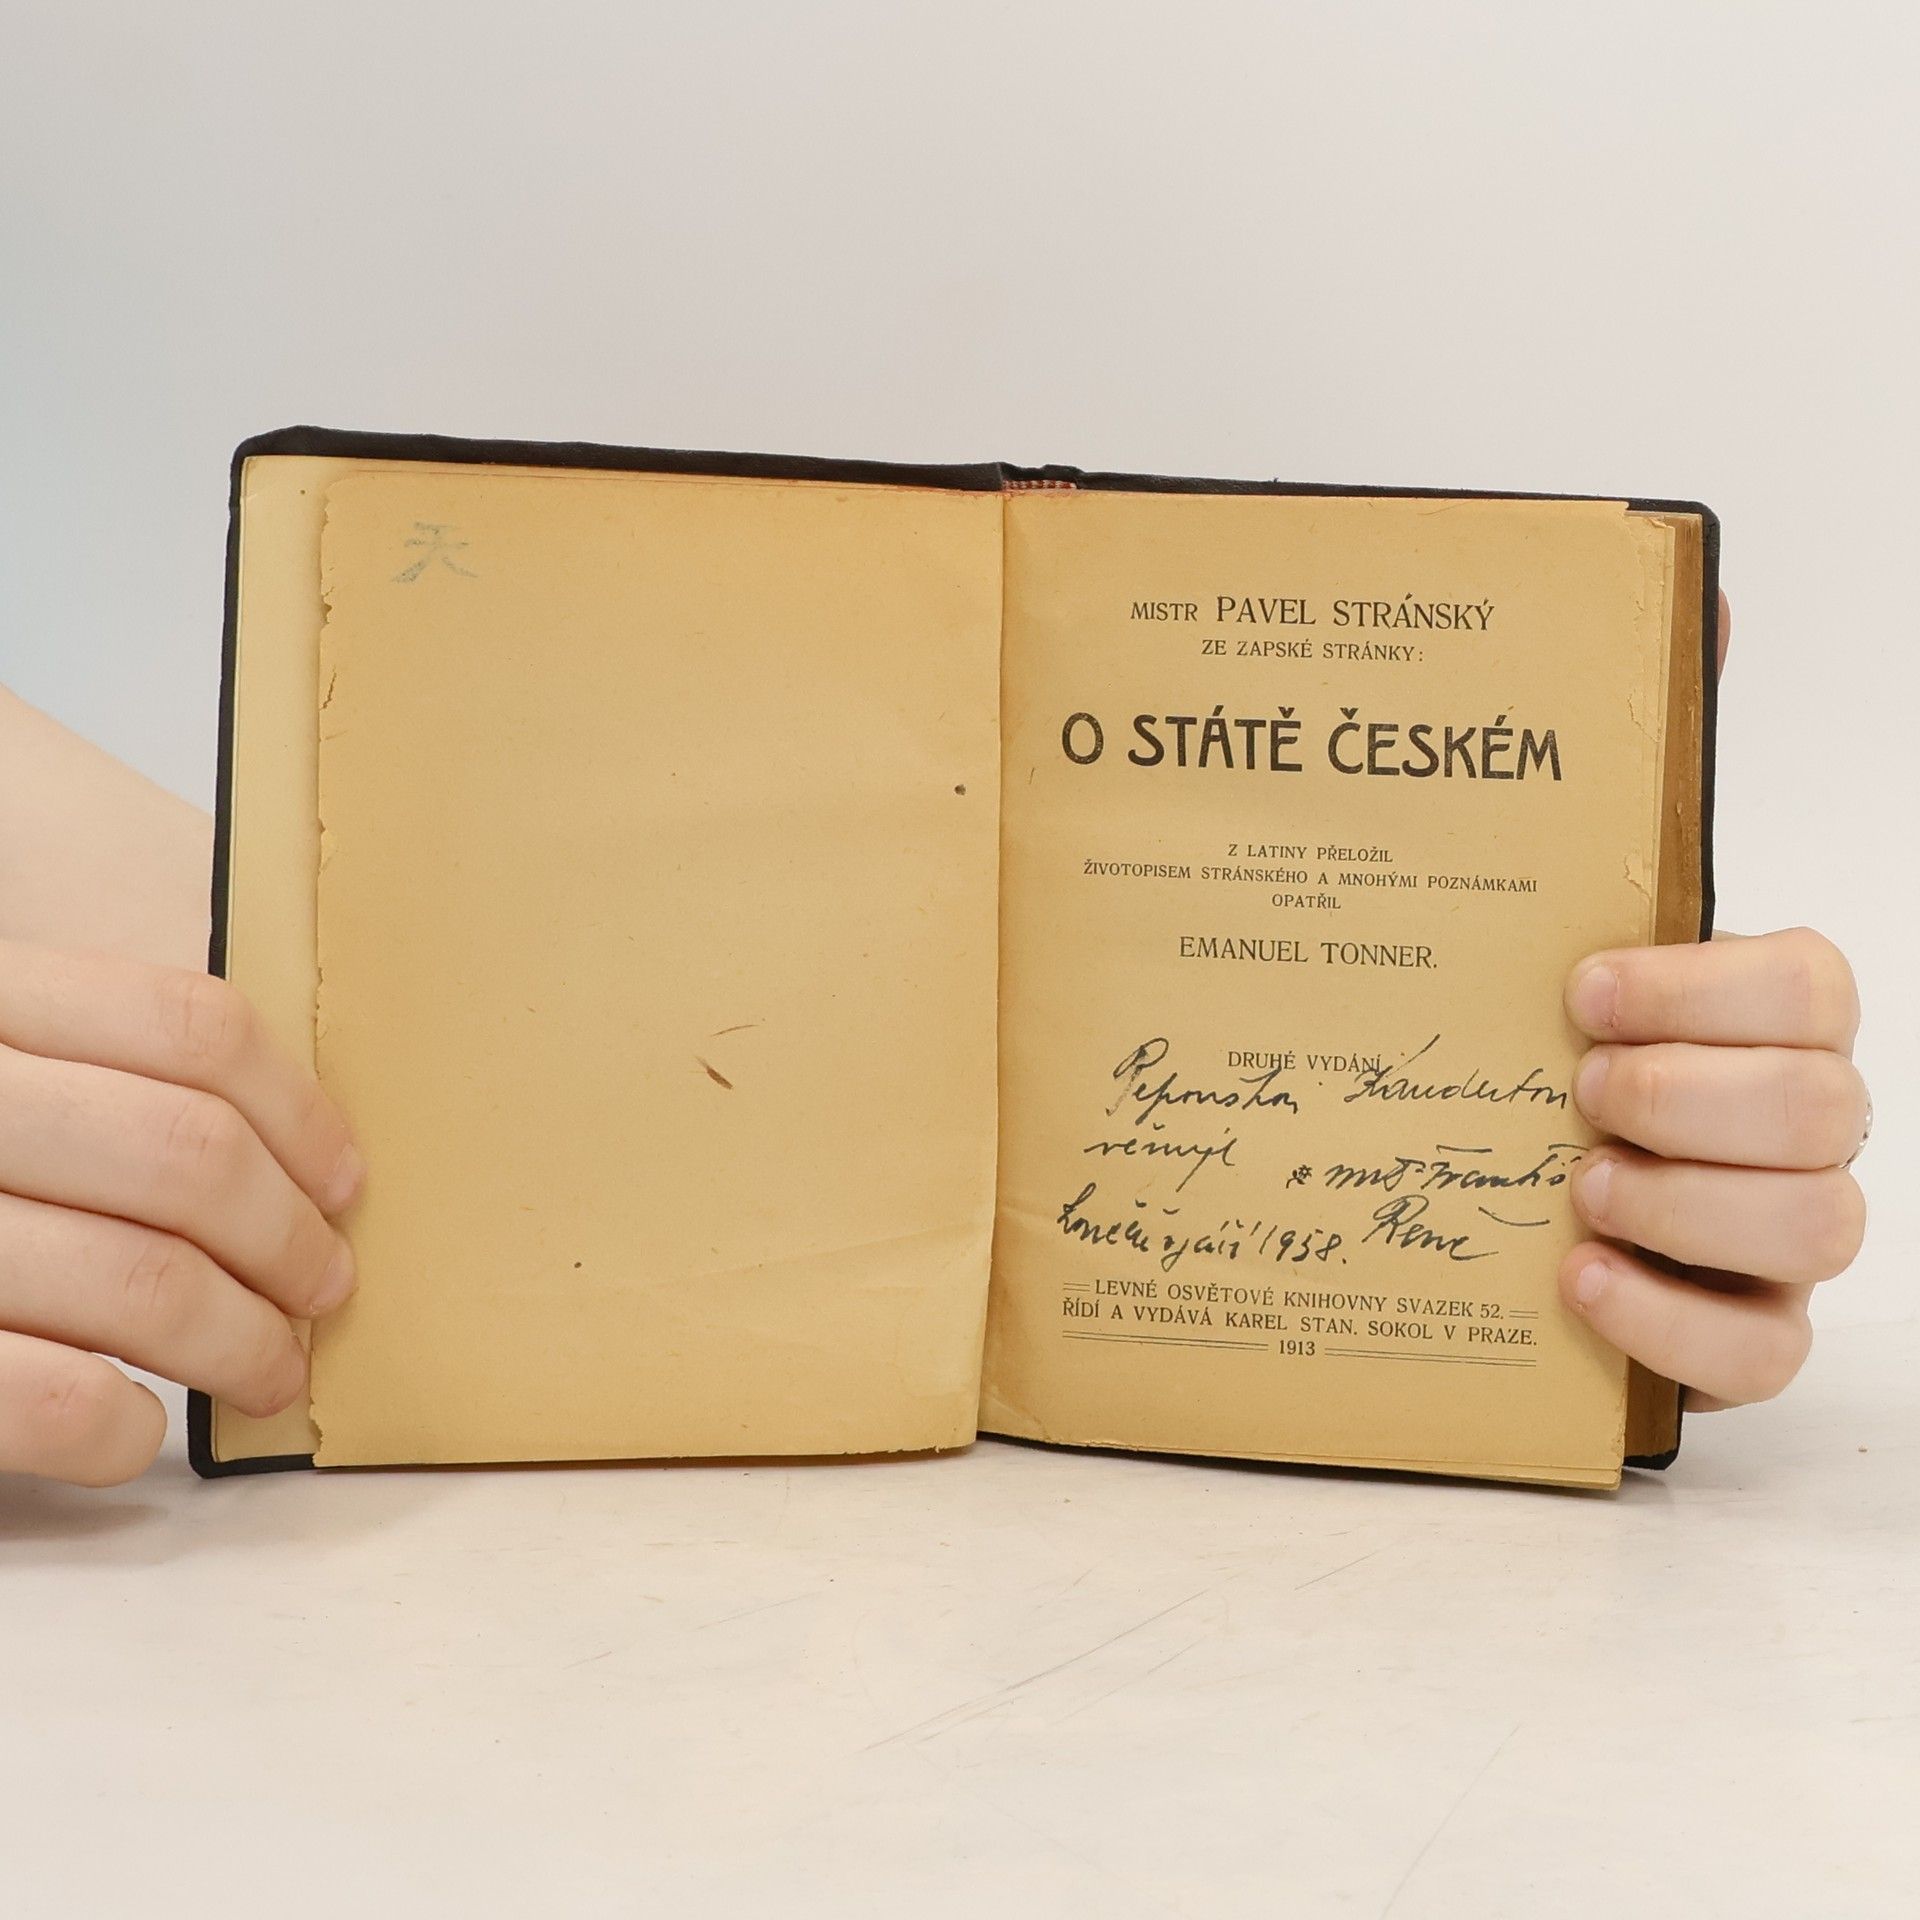 MISTR PAVEL STRÁNSKÝ
ZE ZAPSKÉ STRÁNKY:
O STÁTĚ ČESKÉM
Z LATINY PŘELOŽIL
ŽIVOTOPISEM STRÁNSKÉHO A MNOHÝMI POZNÁMKAMI
OPATŘIL
EMANUEL TONNER.
DRUHÉ VYDÁNÍ.
1958. René
LEVNÉ OSVĚTOVÉ KNIHOVNY SVAZEK 52.
ŘÍDÍ A VYDÁVÁ KAREL STAN. SOKOL V PRAZE.
1913